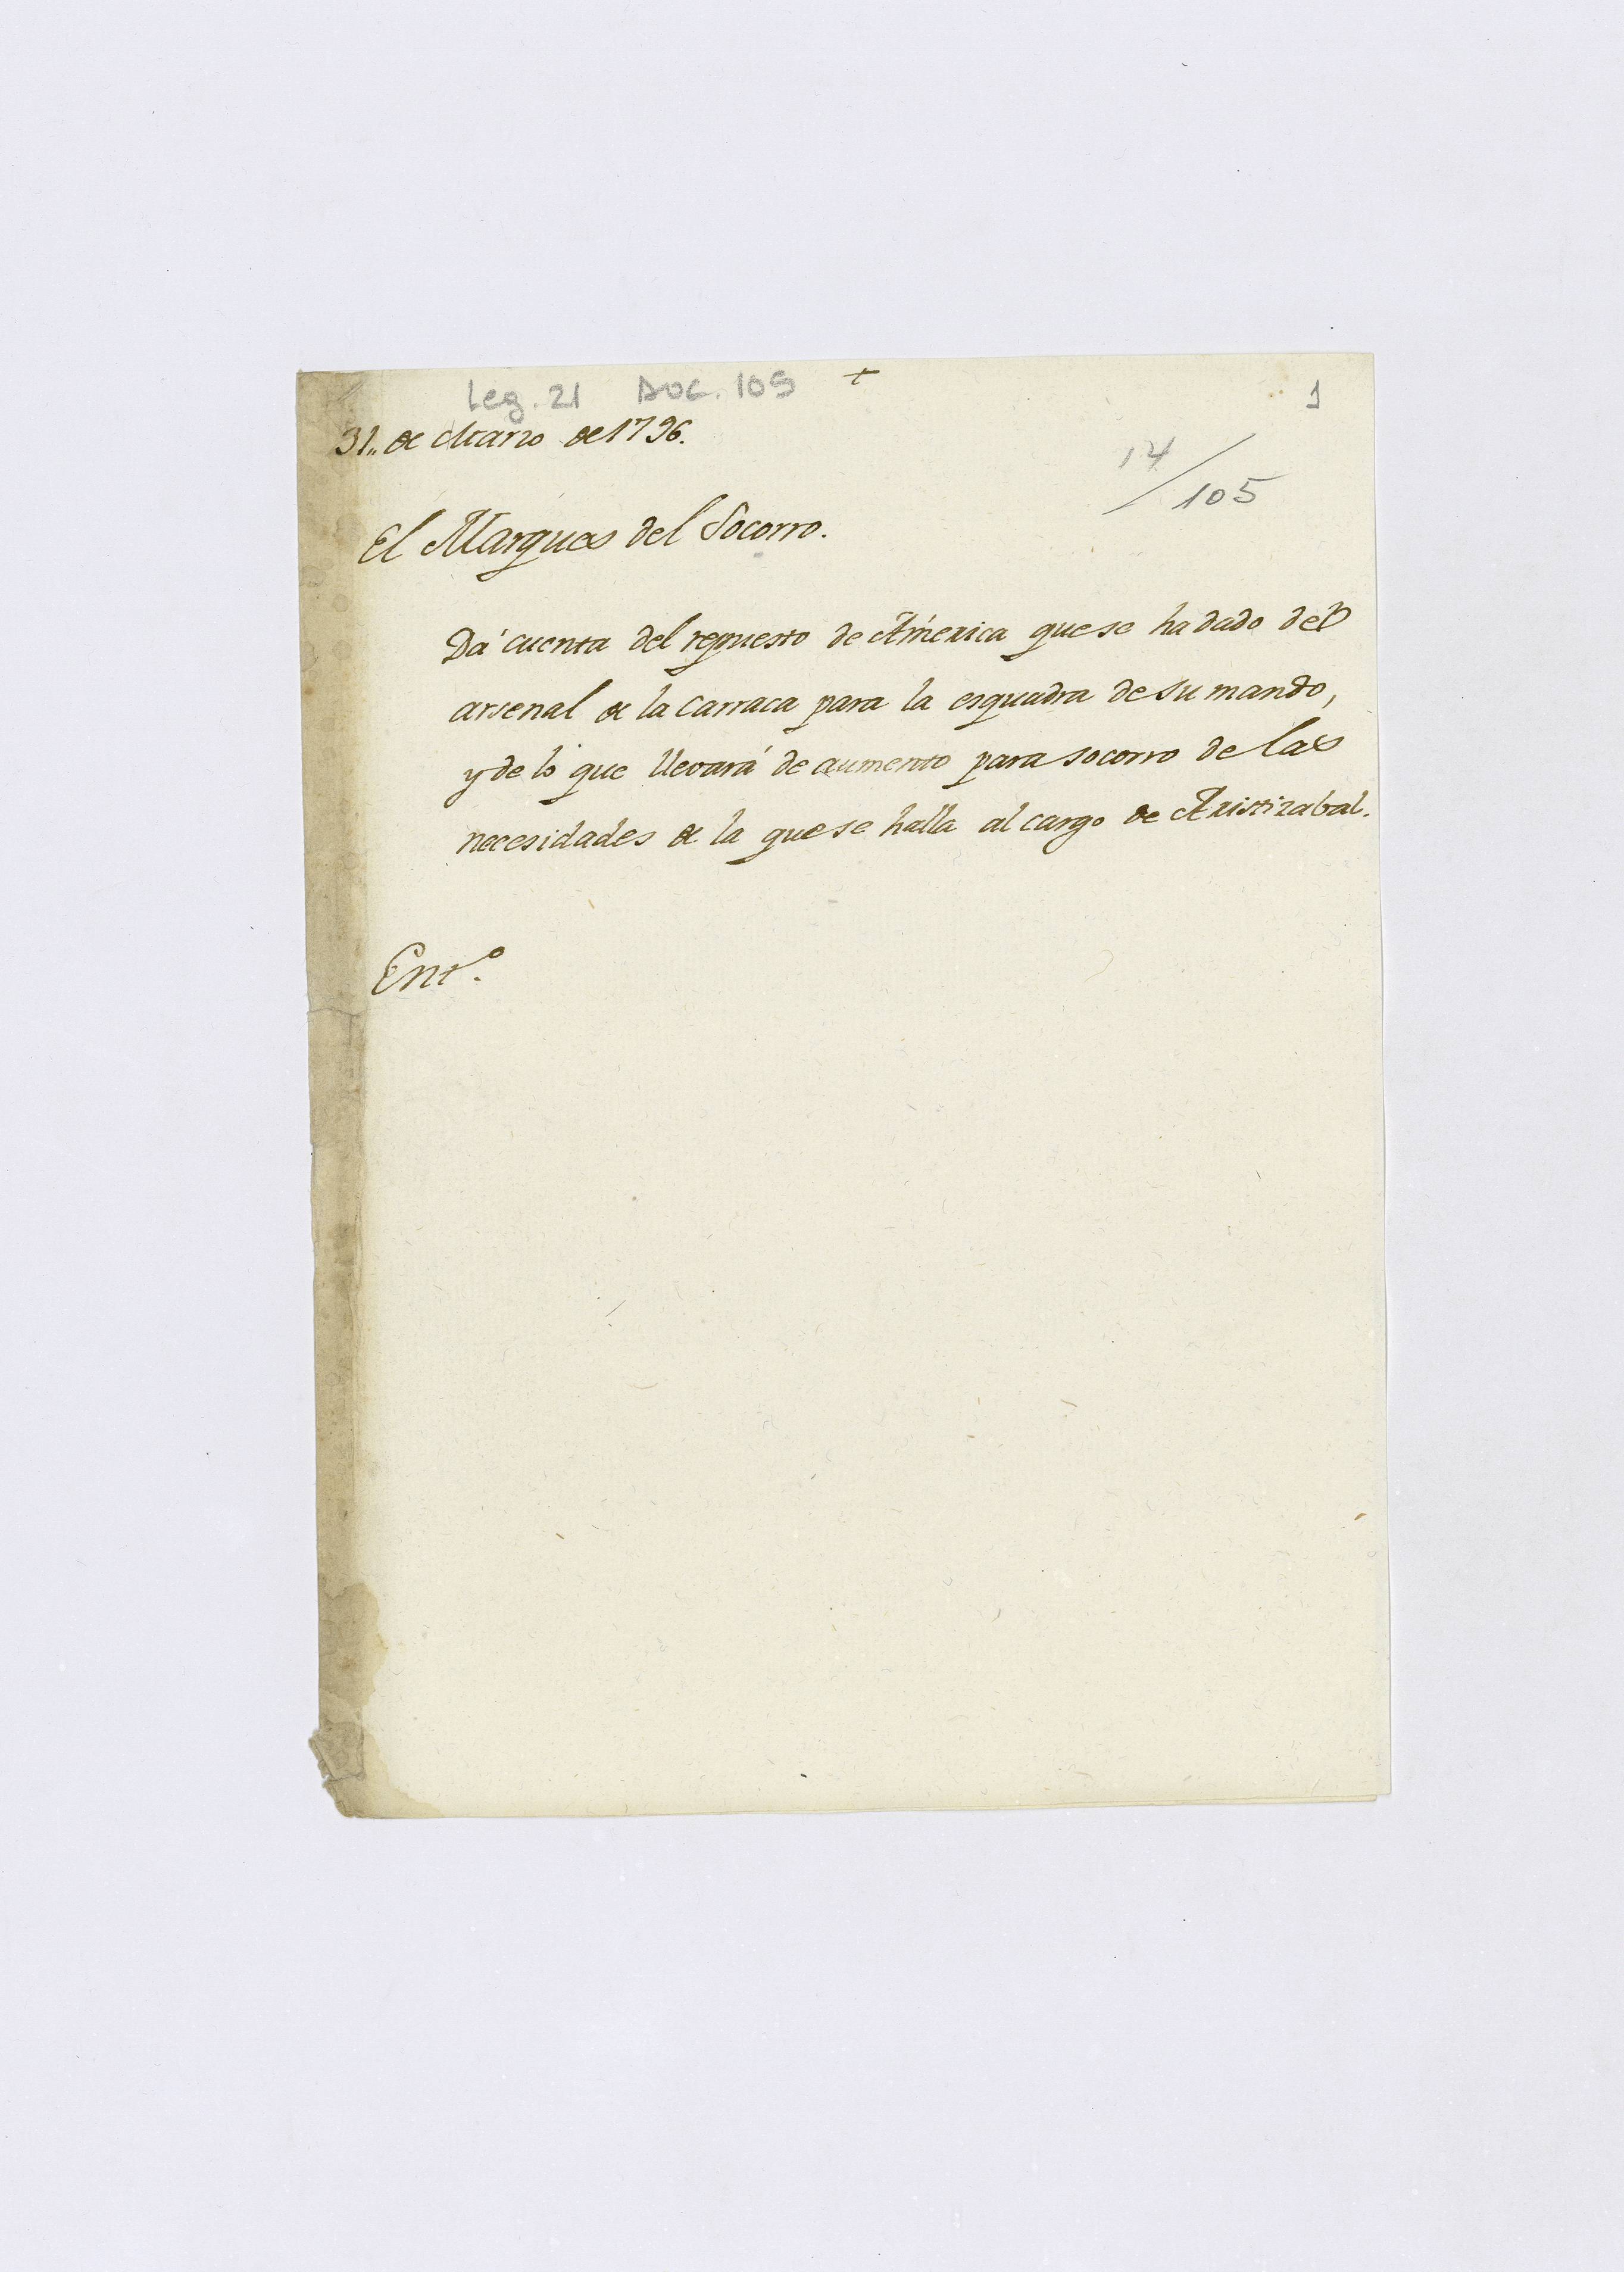 Leg. 21 Doc. 105 +
1
31,, de Marzo de 1796.
14/105
El Marques del Socorro.
Dá cuenta del repuesto de América que se ha dado del
arsenal de la Carraca para la esquadra de su mando,
y de lo que llevará de aumento para socorro de las
necesidades de la que se halla al cargo de Aristizabal.
Ent.º